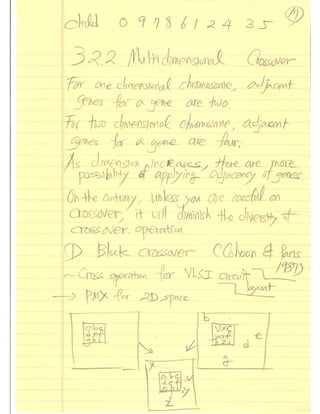 child 0 9 7 8 6 1 2 4 3 5
3.2.2 Multidimensional Crossover
For one dimensional chromosome, adjacent
genes for a gene are two.
For two dimensional chromosome, adjacent
genes for a gene are four.
As dimension increases, there are more
possibility of applying adjacency of genes
On the contrary, unless you are careful on
crossover, it will diminish the diversity of
crossover operation.
1) Block crossover (Cohoon & Paris
1987)
~ Cross operation for VLSI circuit
layout
→ PMX for 2D space
b
e
d
g
x
y
z